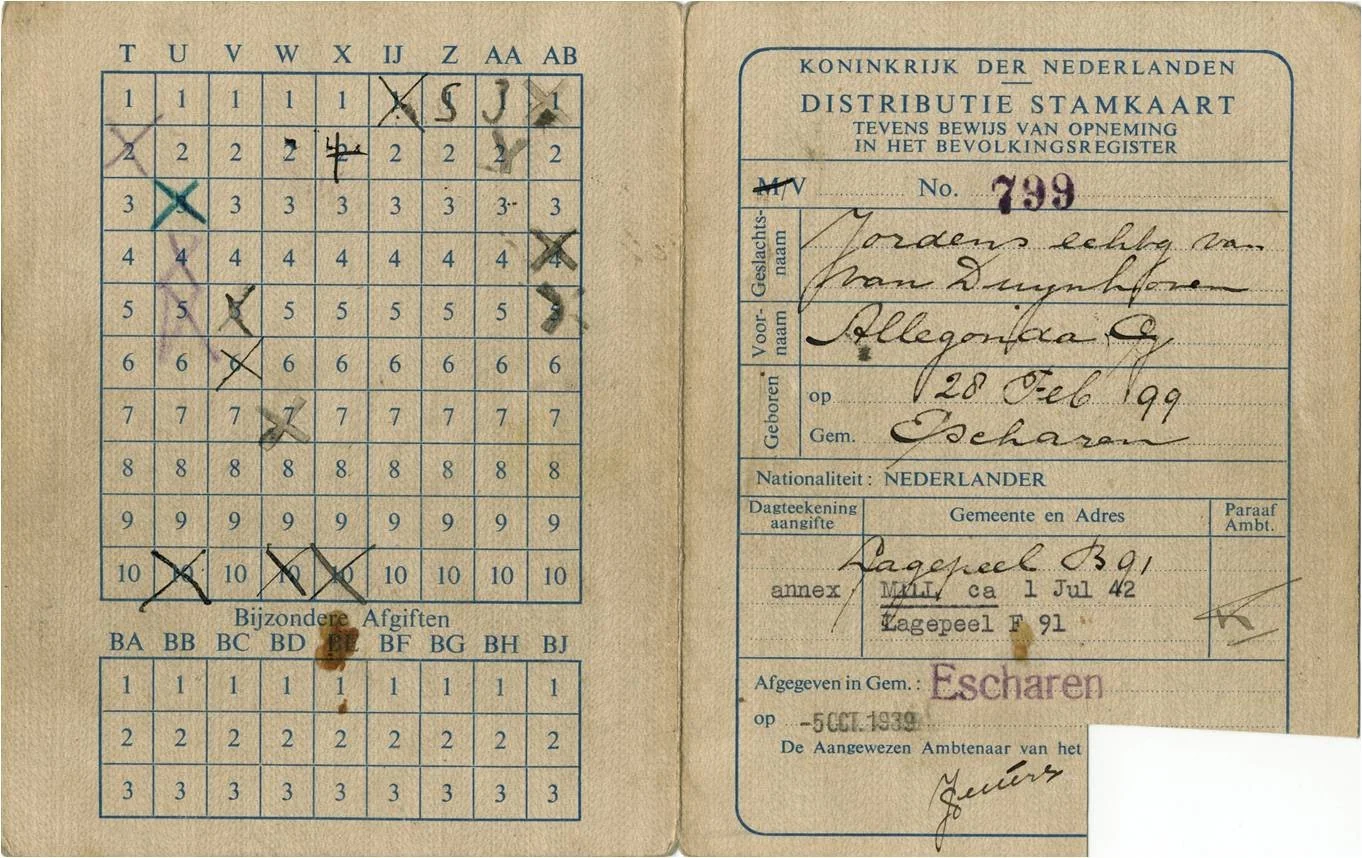 T U V W X IJ Z AA AB
1 1 1 1 1 1 5 3 1
2 2 2 2 4 2 2 2 2
3 3 3 3 3 3 3 3 3
4 4 4 4 4 4 4 4 4
5 5 5 5 5 5 5 5 5
6 6 6 6 6 6 6 6 6
7 7 7 7 7 7 7 7 7
8 8 8 8 8 8 8 8 8
9 9 9 9 9 9 9 9 9
10 10 10 10 10 10 10 10 10
Bijzondere Afgiften
BA BB BC BD BE BF BG BH BJ
1 1 1 1 1 1 1 1 1
2 2 2 2 2 2 2 2 2
3 3 3 3 3 3 3 3 3
KONINKRIJK DER NEDERLANDEN
DISTRIBUTIE STAMKAART
TEVENS BEWIJS VAN OPNEMING
IN HET BEVOLKINGSREGISTER
M/V No. 799
Geslachts-
naam
Jordens echtg van
van Duijnhoven
Voor-
naam
Allegonda
Geboren
op 28 Feb 99
Gem. Escharen
Nationaliteit: NEDERLANDER
Dagteekening
aangifte
Gemeente en Adres
Paraaf
Ambt.
Lagepeel B 91
annex MILL ca 1 Jul 42
Lagepeel F 91
Afgegeven in Gem.: Escharen
op -5 OCT. 1939
De Aangewezen Ambtenaar van het